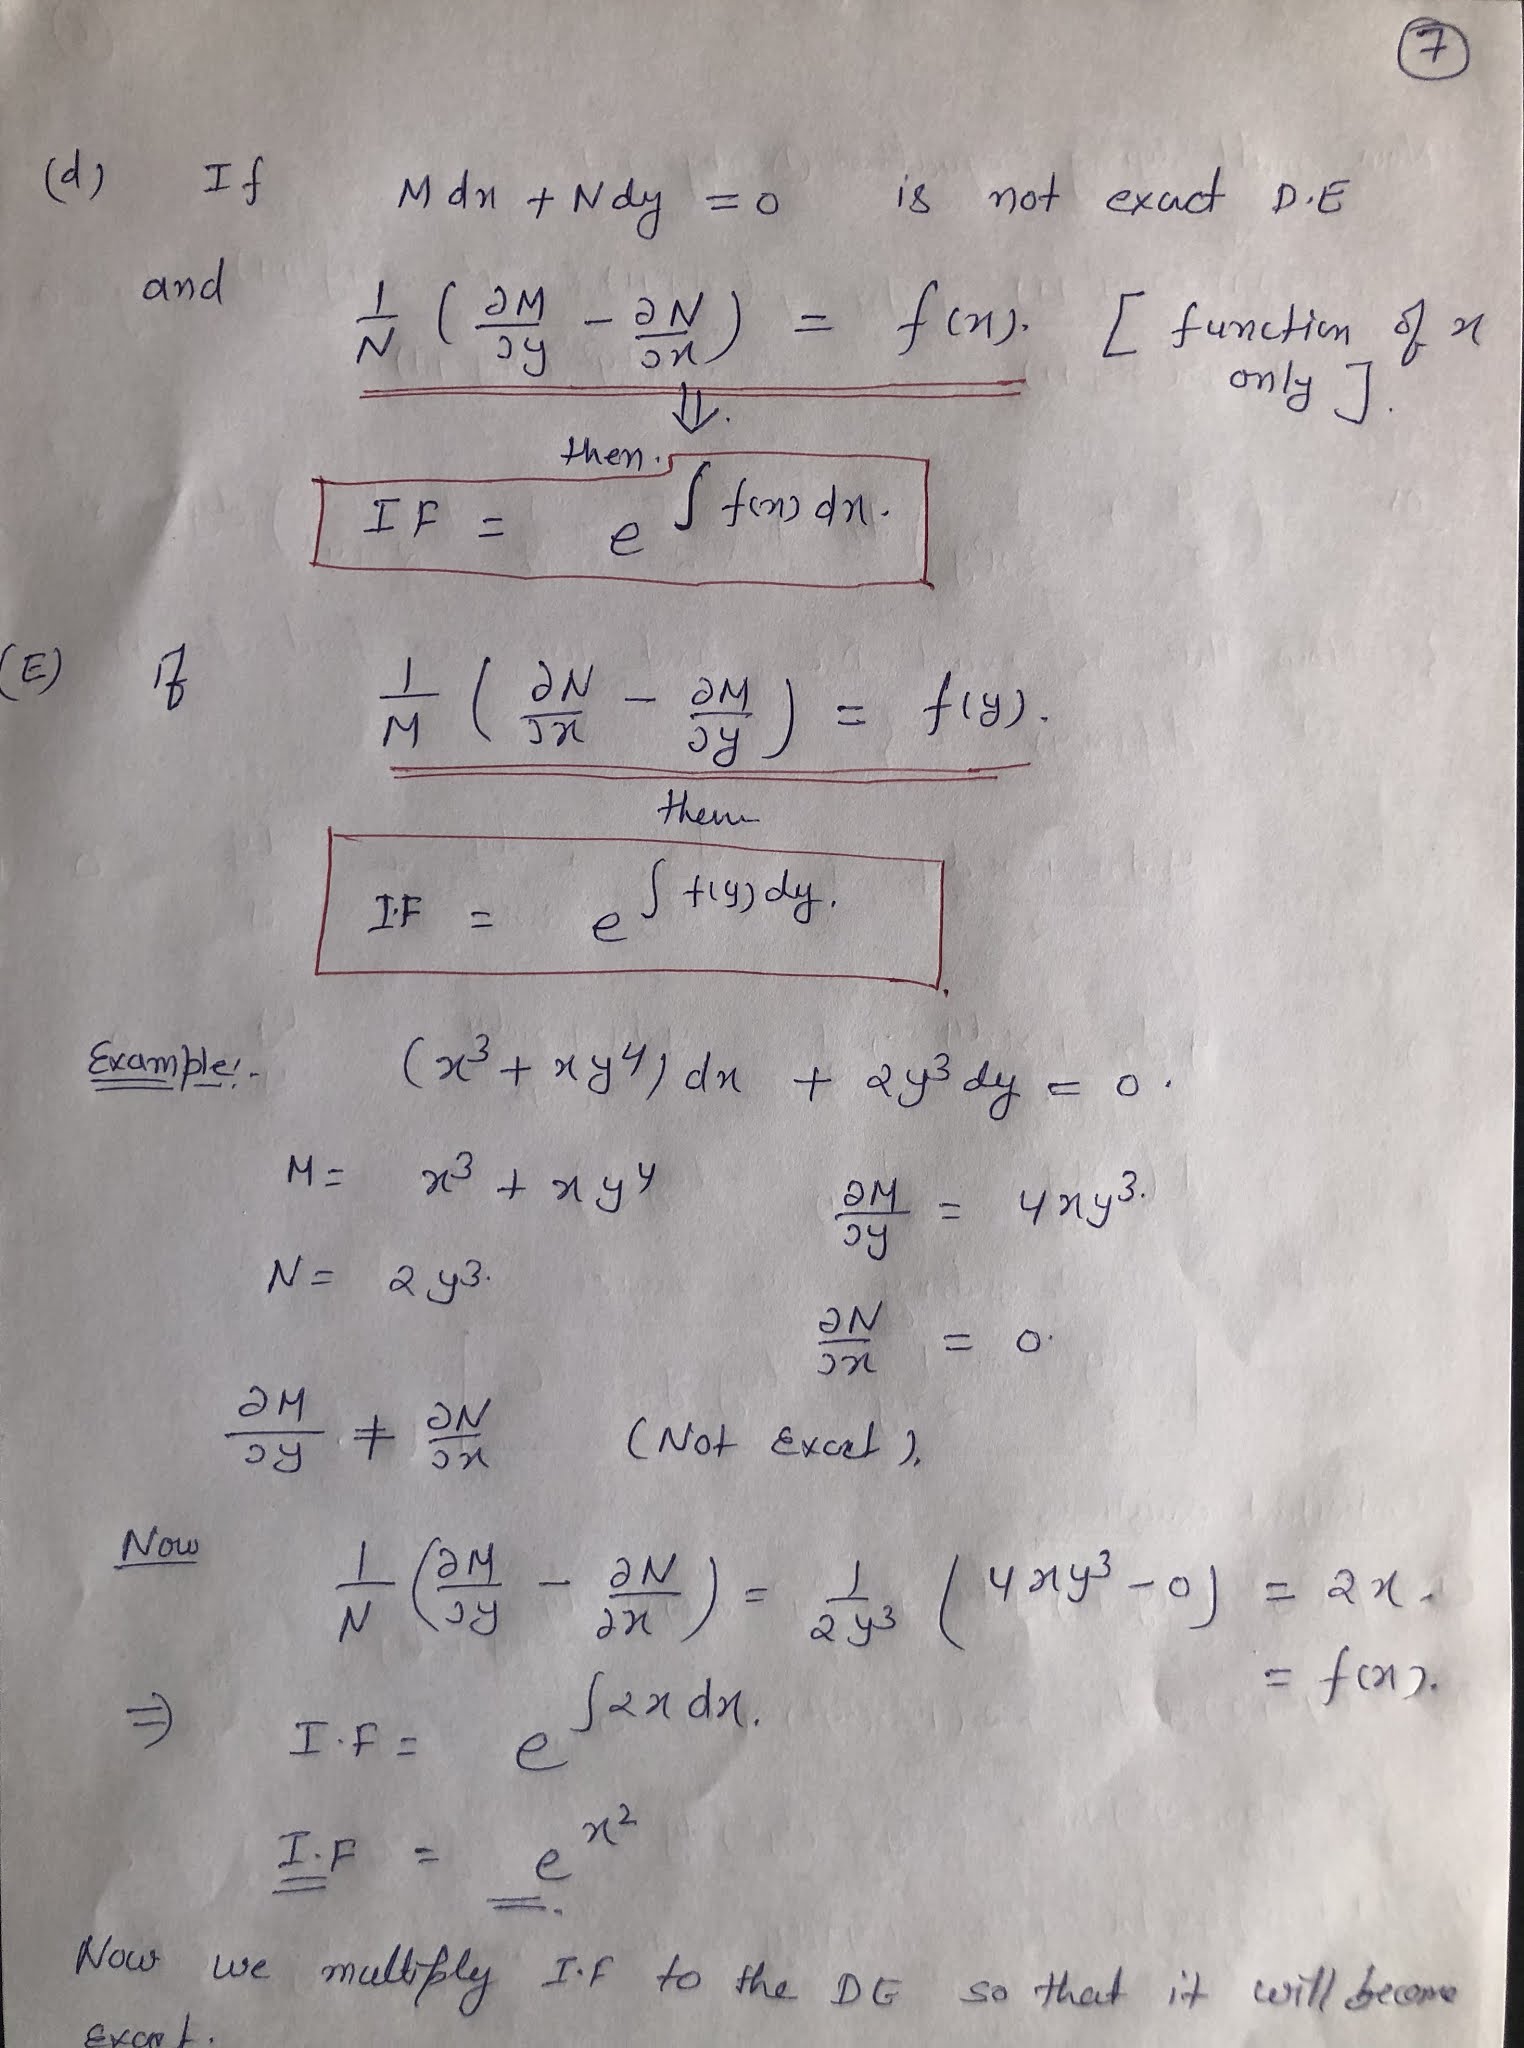 7
(d) If Mdx + Ndy = 0 is not exact D.E
and 1/N (∂M/∂y - ∂N/∂x) = f(x). [function of x
only].
⇓.
then.
IF = e^∫f(x)dx.
(E) if 1/M (∂N/∂x - ∂M/∂y) = f(y).
then
I.F = e^∫f(y)dy.
Example:- (x³ + xy⁴) dx + 2y³ dy = 0.
M = x³ + xy⁴ ∂M/∂y = 4xy³.
N = 2y³. ∂N/∂x = 0.
∂M/∂y ≠ ∂N/∂x (Not Exact).
Now 1/N (∂M/∂y - ∂N/∂x) = 1/2y³ (4xy³ - 0) = 2x.
= f(x).
⇒ I.F = e^∫2x dx.
I.F = e^x².
Now we multiply I.F to the DE so that it will become
Exact.